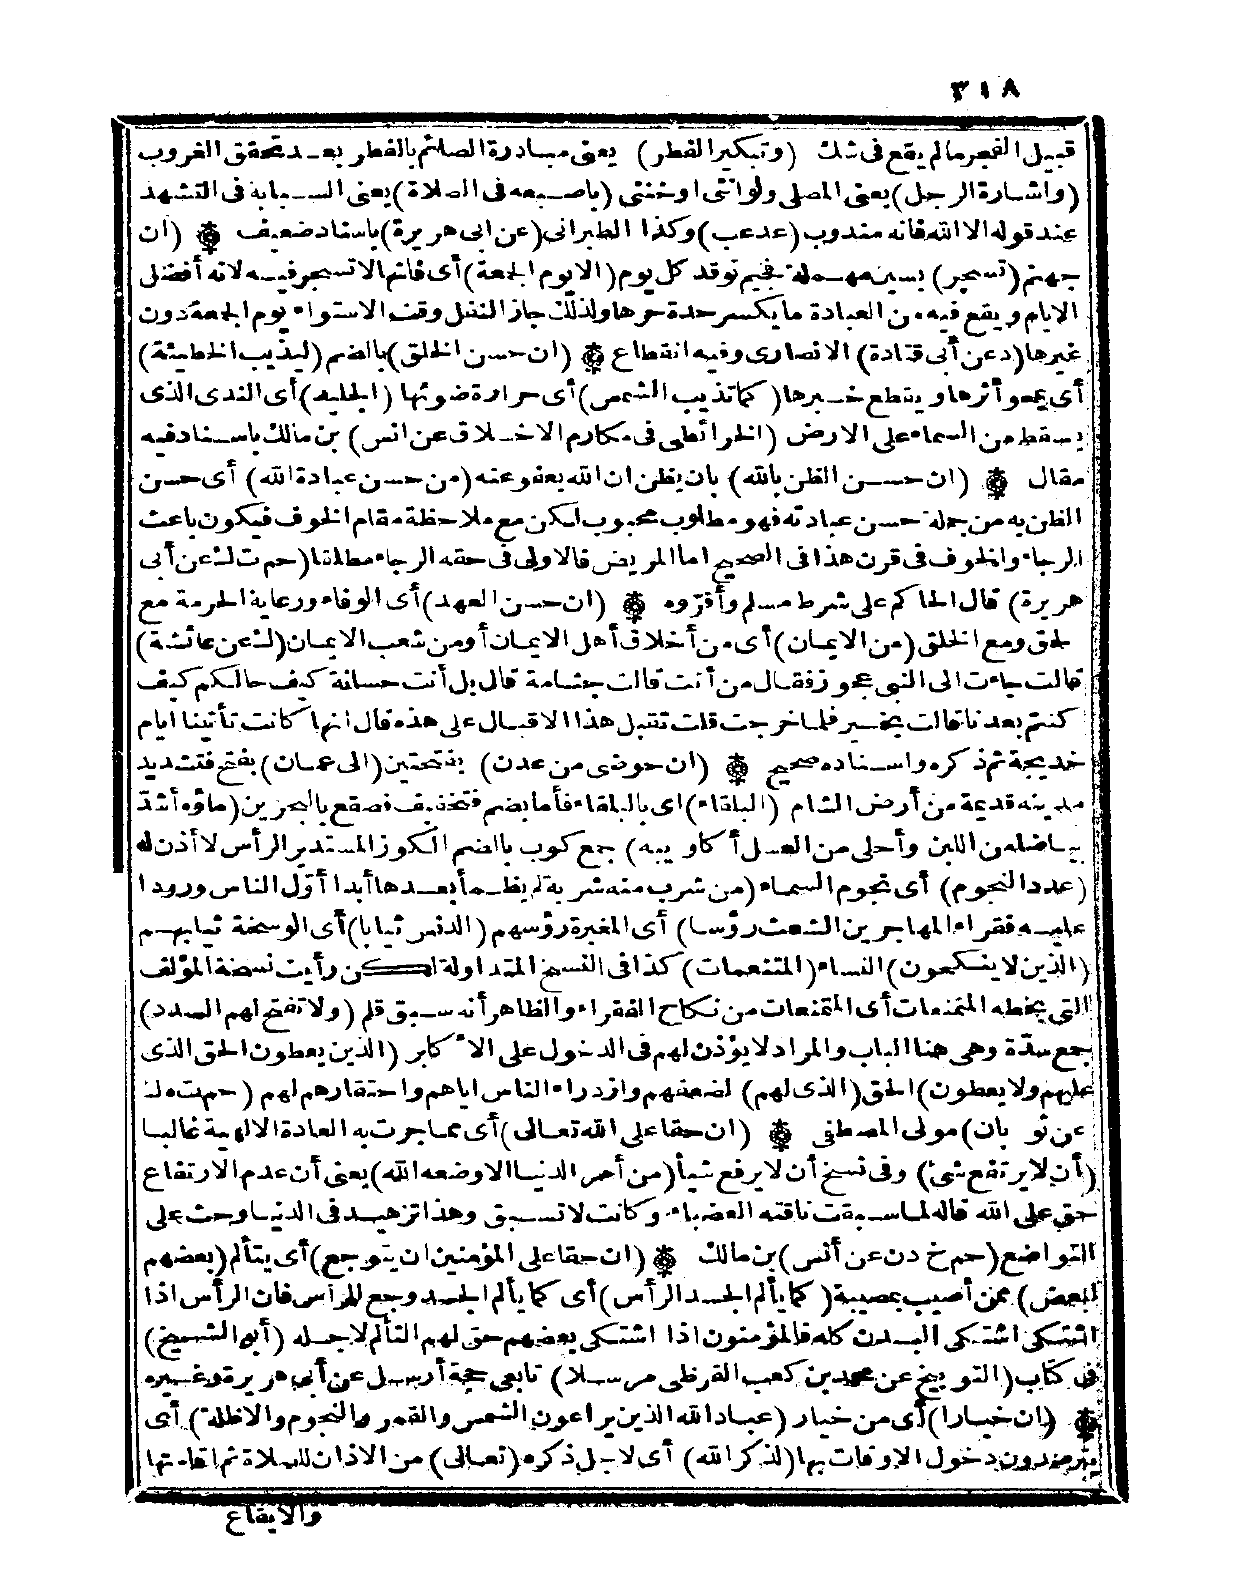 ٣١٨
قبيل الفجر مالم يقع فى شك (وتبكير الفطر) يعنى مبادرة الصائم بالفطر بعد تحقق الغروب
(واشارة الرجل) يعنى المصلى ولو انثى اوخنثى (باصبعه فى الصلاة) يعنى السبابة فى التشهد
عند قوله الا الله فانه مندوب (عد عب) وكذا الطبرانى (عن ابى هريرة) باسناد ضعيف ۞ (ان
جهنم (تسجر) بسين مهملة فجيم توقد كل يوم (الا يوم الجمعة) أى فانها لا تسجر فيه لانه أفضل
الايام ويقع فيه من العبادة ما يكسر حدة حرها ولذلك جاز النفل وقت الاستواء يوم الجمعة دون
غيرها (د عن أبى قتادة) الانصارى وفيه انقطاع ۞ (ان حسن الخلق) بالضم (ليذيب الخطيئة)
أى يمحو أثرها ويقطع خبرها (كما تذيب الشمس) أى حرارة ضوئها (الجليد) أى الندى الذى
يسقط من السماء على الارض (الخرائطى فى مكارم الاخلاق عن انس) بن مالك باسناد فيه
مقال ۞ (ان حسن الظن بالله) بان يظن ان الله يعفو عنه (من حسن عبادة الله) أى حسن
الظن به من جملة حسن عبادته فهو مطلوب محبوب لكن مع ملاحظة مقام الخوف فيكون باعث
الرجاء والخوف فى قرن هذا فى الصحيح اما المريض فالاولى فى حقه الرجاء مطلقا (حم ت ك عن أبى
هريرة) قال الحاكم على شرط مسلم وأقروه ۞ (ان حسن العهد) أى الوفاء ورعاية الحرمة مع
لحق ومع الخلق (من الايمان) أى من أخلاق أهل الايمان أو من شعب الايمان (ك عن عائشة)
قالت جاءت الى النبى عجوز فقال من أنت قالت جثامة قال بل أنت حسانة كيف حالكم كيف
كنتم بعدنا قالت بخير فلما خرجت قلت تقبل هذا الاقبال على هذه قال انها كانت تأتينا ايام
خديجة ثم ذكره واسناده صحيح ۞ (ان حوضى من عدن) بفتحتين (الى عمان) بفتح فتشديد
مدينة قديمة من أرض الشام (البلقاء) اى بالبلقاء فأما بضم فتخفيف فصقع بالبحرين (ماؤه أشدّ
بياضا من اللبن وأحلى من العسل أكاويبه) جمع كوب بالضم الكوز المستدير الرأس لا أذن له
(عدد النجوم) أى نجوم السماء (من شرب منه شربة لم يظمأ بعدها أبدا أوّل الناس ورودا
عليه فقراء المهاجرين الشعث رؤسا) أى المغبرة رؤسهم (الدنس ثيابا) أى الوسخة ثيابهم
(الذين لا ينكحون) النساء (المتنعمات) كذا فى النسخ المتداولة لكن رأيت نسخة المؤلف
التى بخطه المتمنعات أى الممتنعات من نكاح الفقراء والظاهر أنه سبق قلم (ولا تفتح لهم السدد)
جمع سدّة وهى هنا الباب والمراد لا يؤذن لهم فى الدخول على الاكابر (الذين يعطون الحق الذى
عليهم ولا يعطون) الحق (الذى لهم) لضعفهم وازدراء الناس اياهم واحتقارهم لهم (حم ت ه ك
عن ثوبان) مولى المصطفى ۞ (ان حقا على الله تعالى) أى مما جرت به العادة الالهية غالبا
(أن لا يرتفع شئ) وفى نسخ أن لا يرفع شيأ (من أمر الدنيا الا وضعه الله) يعنى أن عدم الارتفاع
حق على الله قاله لما سبقت ناقته العضباء وكانت لا تسبق وهذا تزهيد فى الدنيا وحث على
التواضع (حم خ د ن عن أنس) بن مالك ۞ (ان حقا على المؤمنين ان يتوجع) أى يتألم (بعضهم
لبعض) ممن أصيب بمصيبة (كما يألم الجسد الرأس) أى كما يألم الجسد وجع للرأس فان الرأس اذا
اشتكى اشتكى البدن كله فالمؤمنون اذا اشتكى بعضهم حق لهم التألم لاجله (أبو الشيخ)
فى كتاب (التوبيخ عن محمد بن كعب القرظى مرسلا) تابعى حجة أرسل عن أبى هريرة وغيره
۞ (ان خيارا) أى من خيار (عباد الله الذين يراعون الشمس والقمر والنجوم والاظلة) أى
يترصدون دخول الاوقات بها (لذكر الله) أى لاجل ذكره (تعالى) من الاذان للصلاة ثم اقامتها
والايقاع